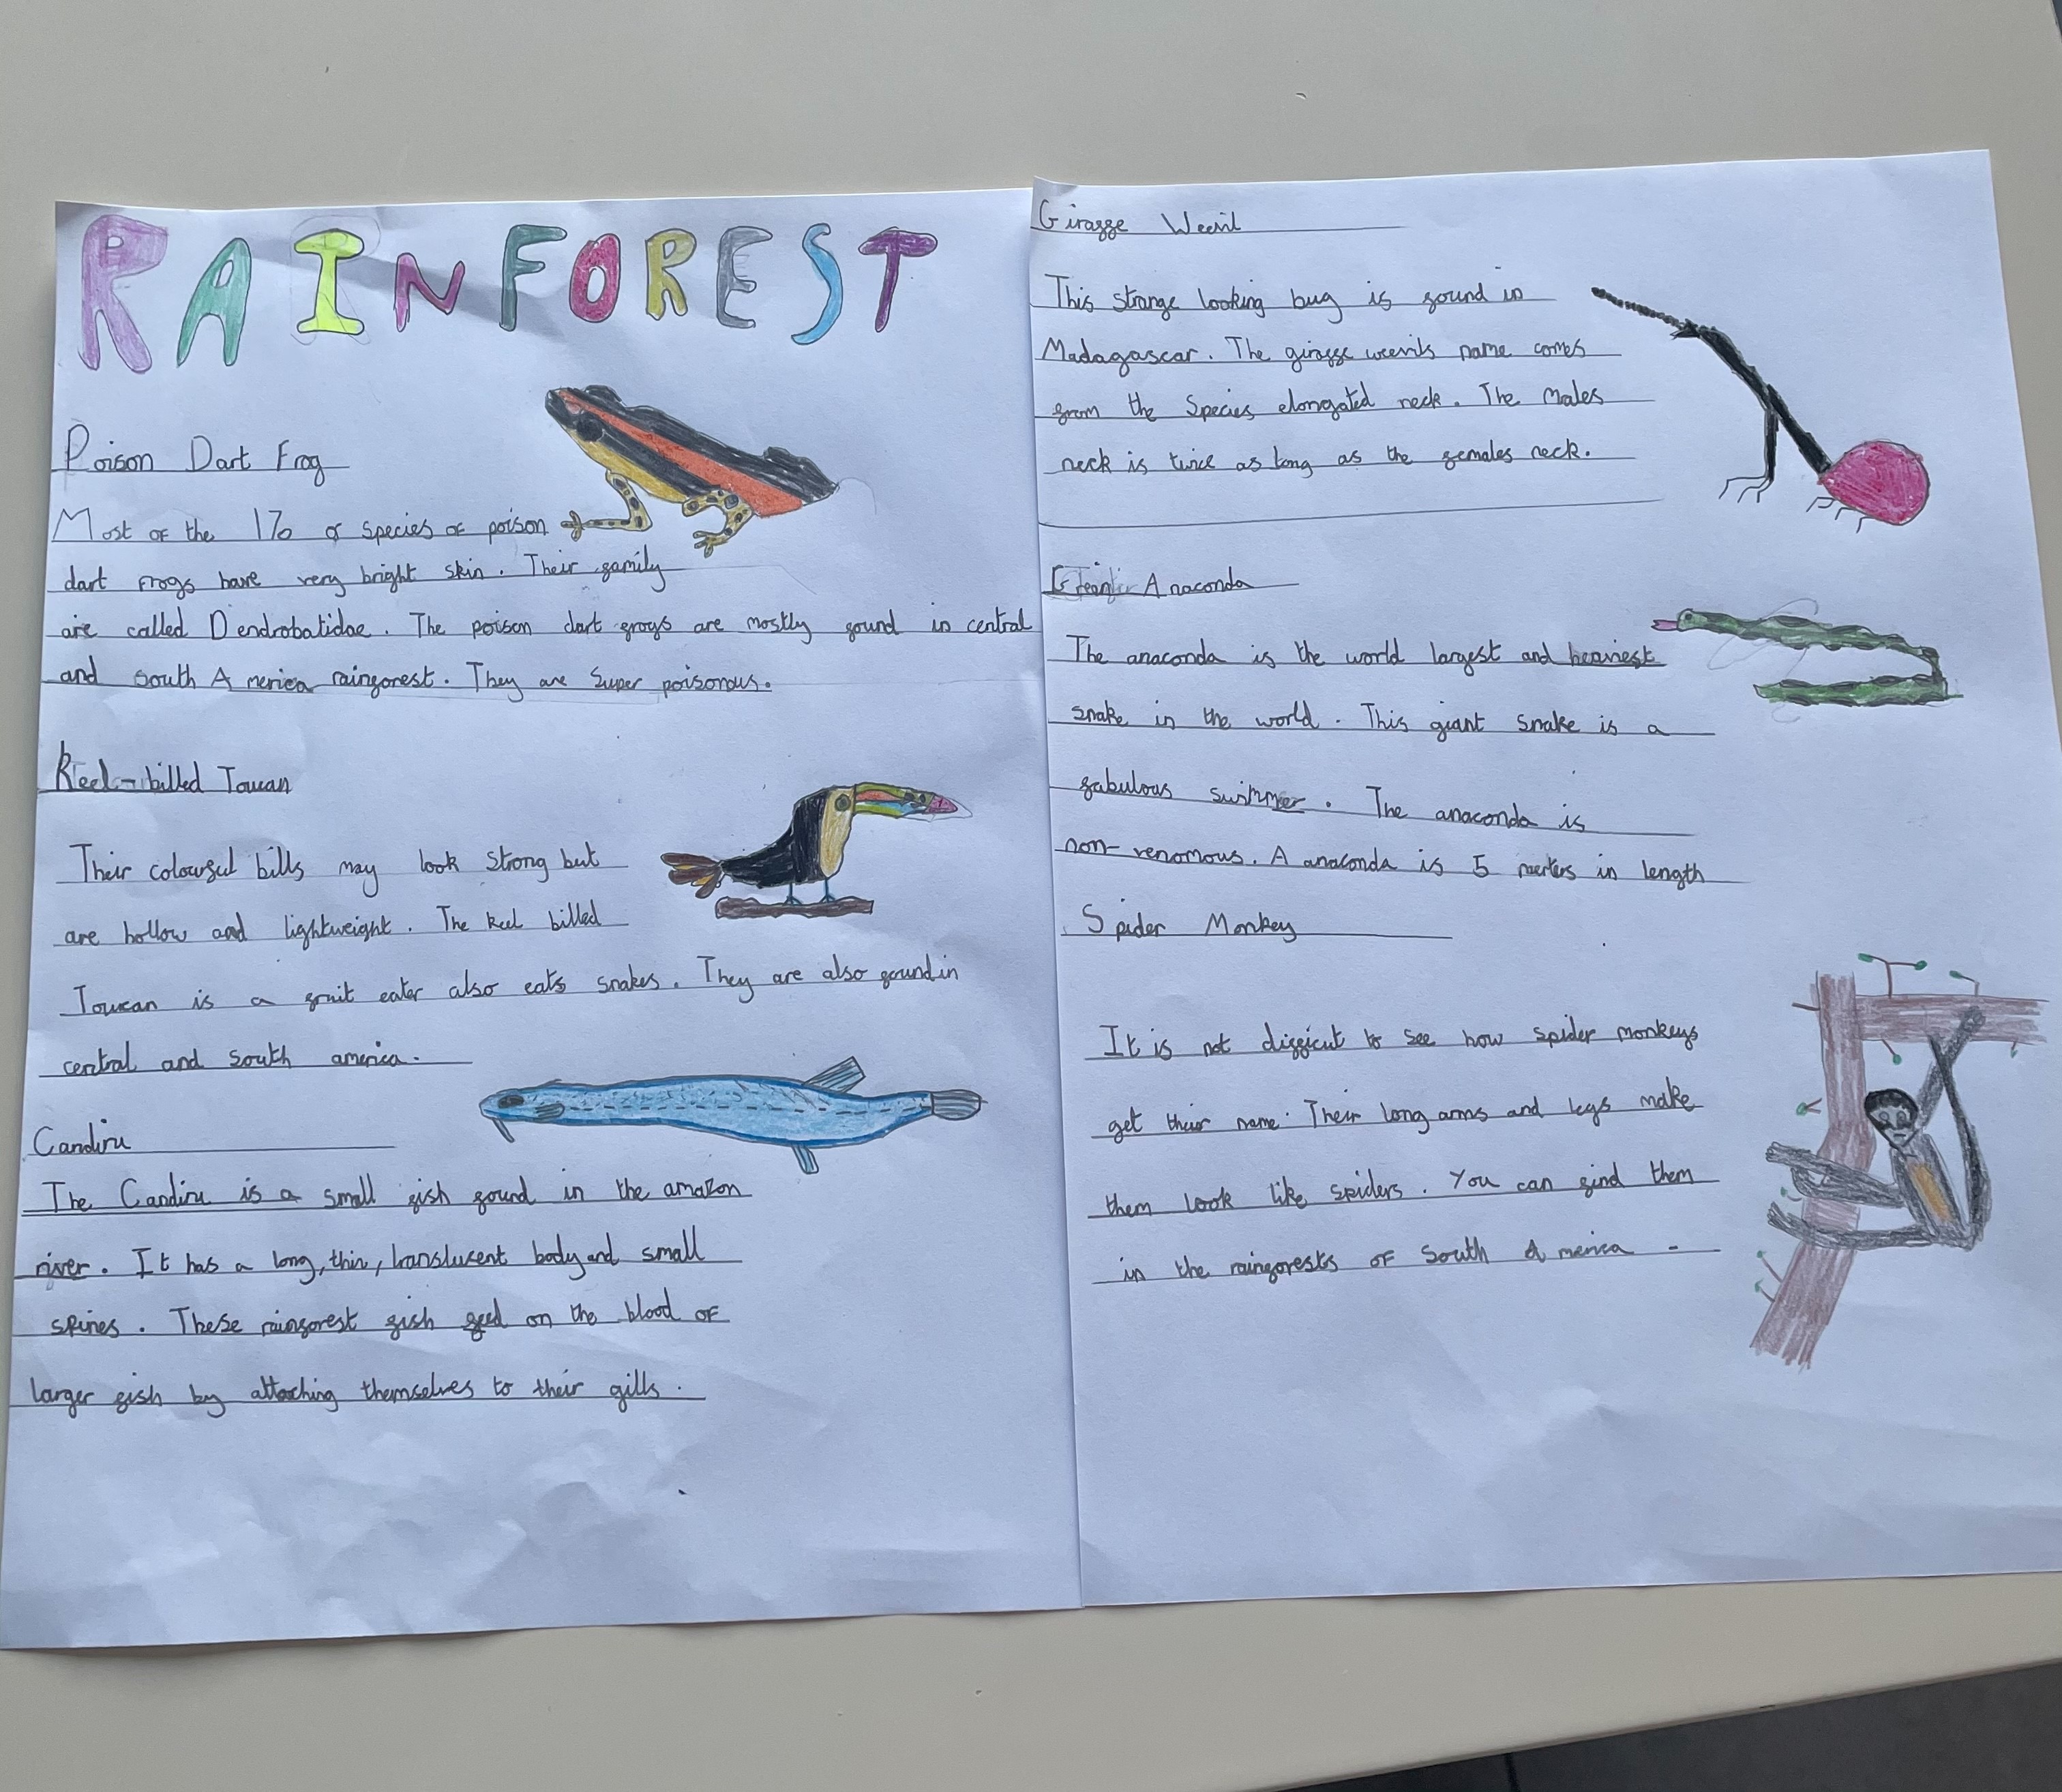 RAINFOREST
Poison Dart Frog
Most of the 170 of species of poison
dart frogs have very bright skin. Their family
are called Dendrobatidae. The poison dart frogs are mostly found in central
and south America rainforest. They are super poisonous.
Keel-billed Toucan
Their colourful bills may look strong but
are hollow and lightweight. The keel billed
Toucan is a fruit eater also eats snakes. They are also found in
central and south america.
Candiru
The Candiru is a small fish found in the amazon
river. It has a long, thin, translucent body and small
spines. These rainforest fish feed on the blood of
larger fish by attaching themselves to their gills.
Giraffe Weevil
This strange looking bug is found in
Madagascar. The giraffe weevils name comes
from the Species elongated neck. The Males
neck is twice as long as the females neck.
Anaconda
The anaconda is the world largest and heaviest
snake in the world. This giant snake is a
fabulous swimmer. The anaconda is
non-venomous. A anaconda is 5 meters in length
Spider Monkey
It is not difficut to see how spider monkeys
get their name. Their long arms and legs make
them look like spiders. You can find them
in the rainforests of South America -